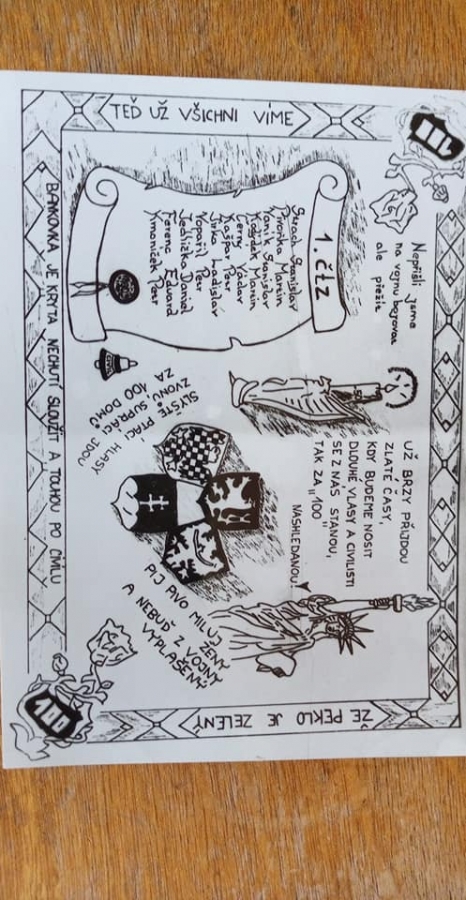 TEĎ UŽ VŠICHNI VÍME
100
Nepřišli jsme
na vojnu bojovat
ale přežít
1. čtz
Gerach Stanislav
Dvořňka Martin
Vaník Stanislav
Kohýdek Marvin
Černý Václav
Kašpar Petr
Jirka Ladislav
Vopařil Petr
Jedlička Daniel
Ferenc Eduard
Kmoníček Petr
SLYŠTE PTAČÍ HLASY
ZVONŮ, SUPRÁCI JDOU
ZA 100 DOMŮ
UŽ BRZY PŘIJDOU
ZLATÉ ČASY,
KDY BUDEME NOSIT
DLOUHÉ VLASY A CIVILISTI
SE Z NÁS STANOU,
TAK ZA „100"
NASHLEDANOU
PIJ PIVO MILUJ ŽENY
A NEBUĎ Z VOJNY
VYPLAŠENÝ
ŽE PEKLO JE ZELENÝ
100
BANKOVKA JE KRYTA NECHUTÍ SLOUŽIT A TOUHOU PO CIVILU